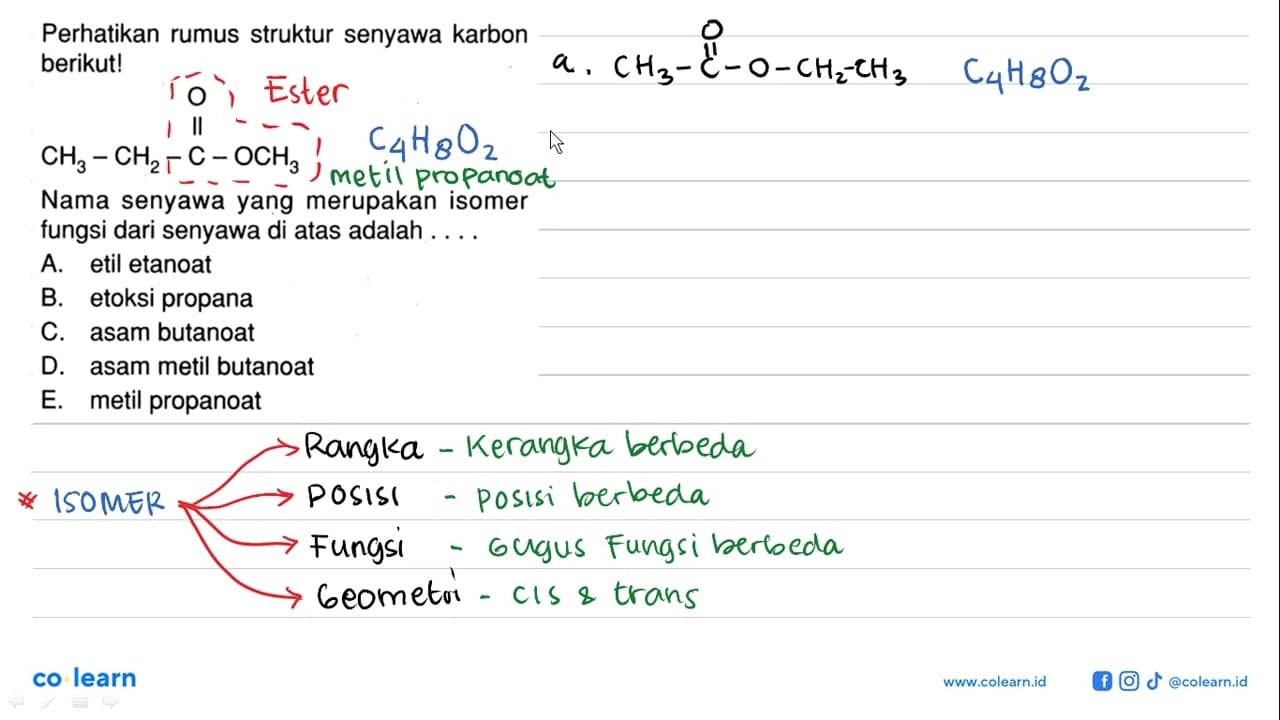 Perhatikan rumus struktur senyawa karbon
berikut!
O
||
CH3 – CH2 – C – OCH3
Ester
C4H8O2
metil propanoat
Nama senyawa yang merupakan isomer
fungsi dari senyawa di atas adalah . . . .
A. etil etanoat
B. etoksi propana
C. asam butanoat
D. asam metil butanoat
E. metil propanoat
O
||
a. CH3 – C – O – CH2-CH3 C4H8O2
* ISOMER
Rangka – Kerangka berbeda
Posisi - posisi berbeda
Fungsi - Gugus Fungsi berbeda
Geometri - cis & trans
co learn
www.colearn.id
@colearn.id